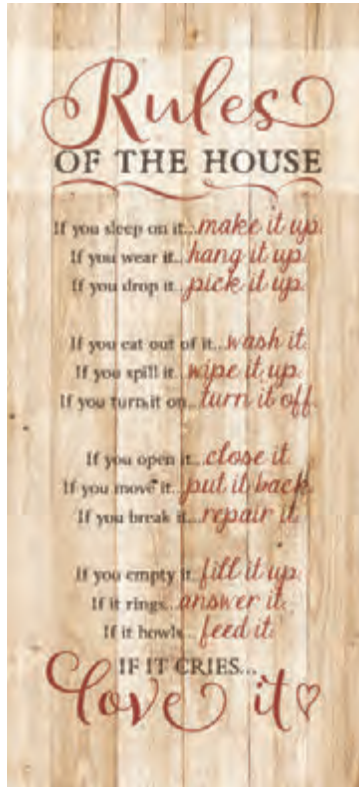 Rules
OF THE HOUSE
If you sleep on it...make it up.
If you wear it...hang it up.
If you drop it...pick it up.
If you eat out of it...wash it.
If you spill it...wipe it up.
If you turn it on...turn it off.
If you open it...close it.
If you move it...put it back.
If you break it...repair it.
If you empty it...fill it up.
If it rings...answer it.
If it howls...feed it.
IF IT CRIES...
love it